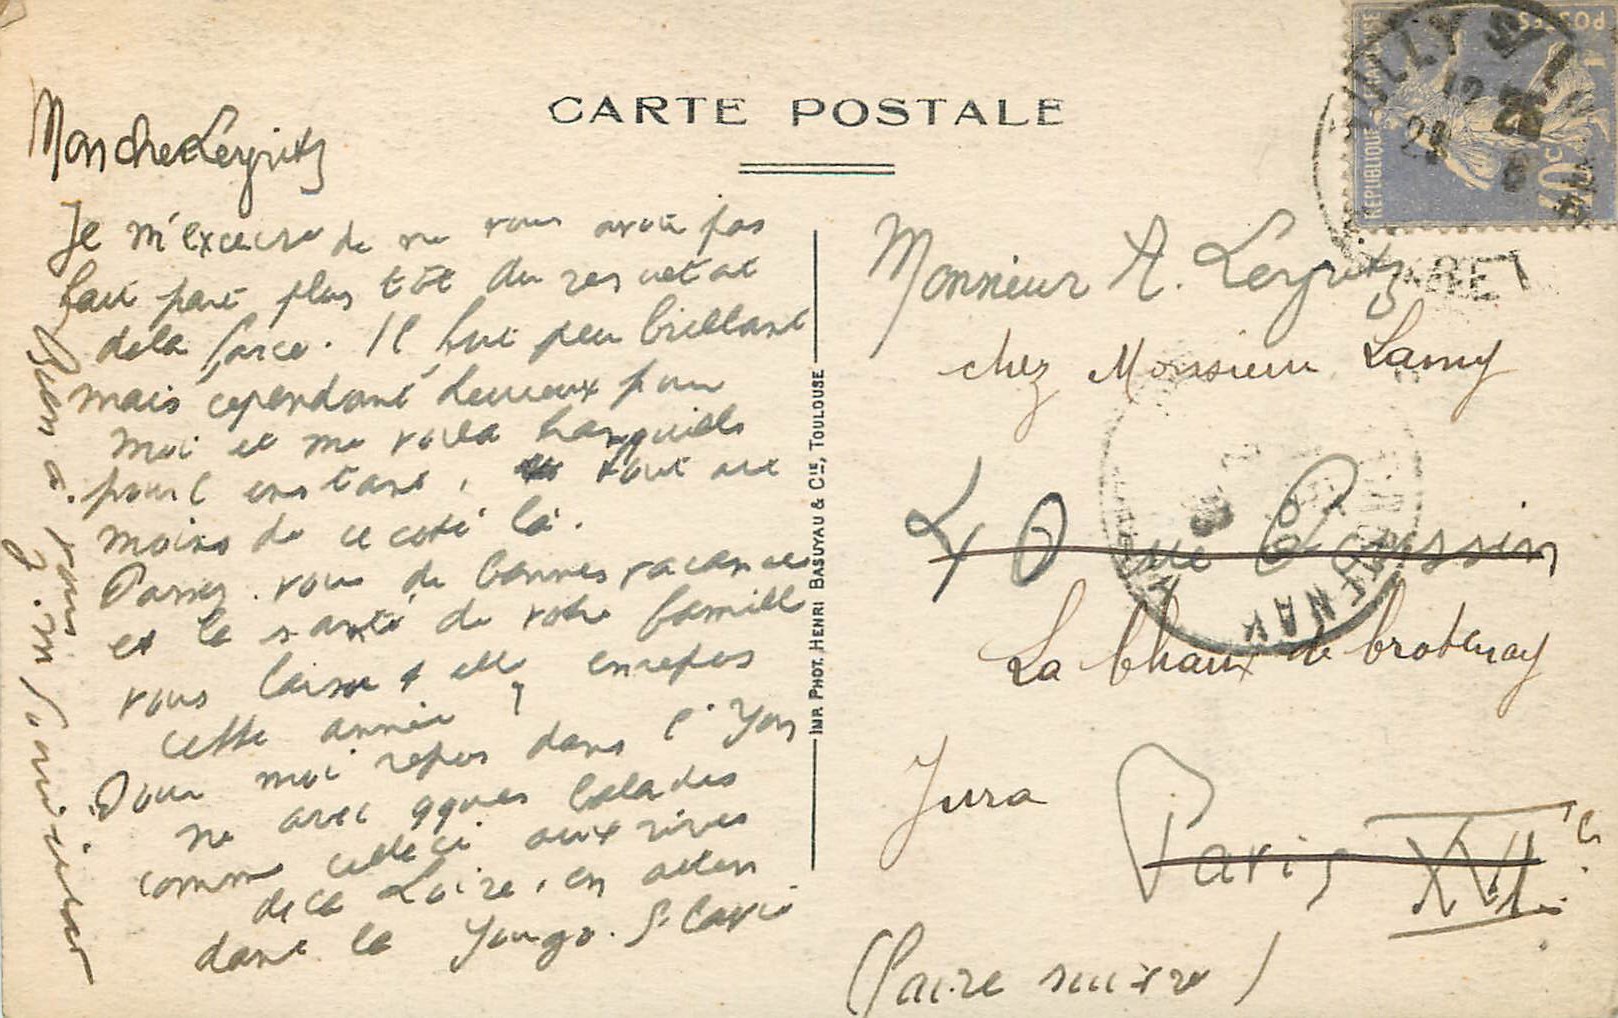 CARTE POSTALE
Mon cher Leyritz
Je m'excuse de ne vous avoir pas
fait part plus tôt du resultat
de la farce. Il fut peu brillant
mais cependant heureux pour
moi et me voila tranquille
pour l'instant, tout au
moins de ce coté là.
Passez vous de bonnes vacances
et la santé de votre famille
vous laisse t elle en repos
cette année ?
Pour moi repos dans l'Yon
ne avec qques balades
comme celle ci aux rives
de la Loire, en atten
dant la Yougo-Slavie
Bien à vous
IMP. PHOT. HENRI BASUYAU & CIE, TOULOUSE
REPUBLIQUE FRANÇAISE
POSTES
40c
Monsieur A. Leyritz
chez Monsieur Lamy
4 Rue Poussin
La Chaux de Crotenay
Jura
Paris XVIe
(Faire suivre)